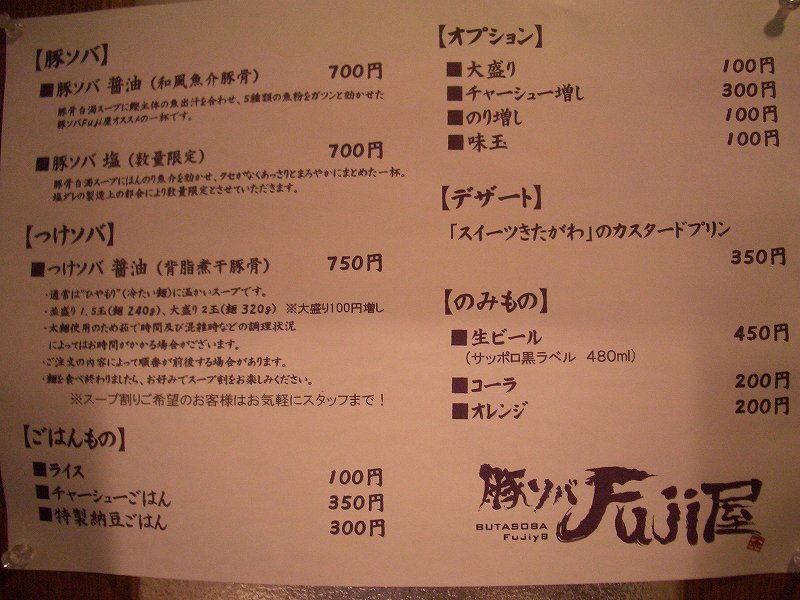 【豚ソバ】
■豚ソバ 醤油 (和風魚介豚骨) 700円
豚骨白濁スープに鰹主体の魚出汁を合わせ、5種類の魚粉をガツンと効かせた
豚ソバFuji屋オススメの一杯です。
■豚ソバ 塩 (数量限定) 700円
豚骨白濁スープにほんのり魚介を効かせ、クセがなくあっさりとまろやかにまとめた一杯。
塩ダレの製造上の都合により数量限定とさせていただきます。
【つけソバ】
■つけソバ 醤油 (背脂煮干豚骨) 750円
・通常は"ひやもり"(冷たい麺)に温かいスープです。
・並盛り1.5玉(麺 240g)、大盛り2玉(麺 320g) ※大盛り100円増し
・太麺使用のため茹で時間及び混雑時などの調理状況
によってはお時間がかかる場合がございます。
・ご注文の内容によって順番が前後する場合があります。
・麺を食べ終わりましたら、お好みでスープ割をお楽しみください。
※スープ割りご希望のお客様はお気軽にスタッフまで！
【ごはんもの】
■ライス 100円
■チャーシューごはん 350円
■特製納豆ごはん 300円
【オプション】
■大盛り 100円
■チャーシュー増し 300円
■のり増し 100円
■味玉 100円
【デザート】
「スイーツきたがわ」のカスタードプリン
350円
【のみもの】
■生ビール 450円
(サッポロ黒ラベル 480ml)
■コーラ 200円
■オレンジ 200円
豚ソバ Fuji屋
BUTASOBA
FuJiyB